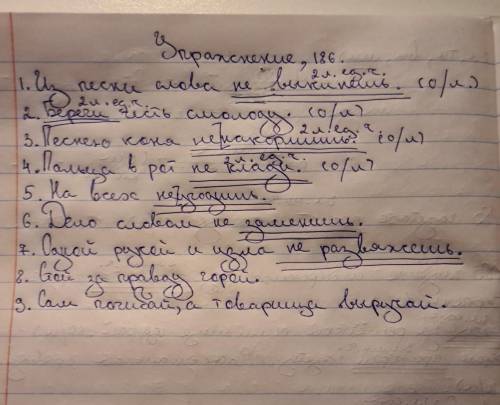 Упражнение, 186.
2л. ед. ч.
1. Из песни слова не выкинешь. (О/л.)
2л. ед. ч.
2. Береги честь смолоду. (О/л)
2л. ед. ч
3. Песнею коня не накормишь. (О/л)
2л. ед. ч.
4. Пальца в рот не клади. (О/л)
5. На всех не угодишь.
6. Дело словом не заменишь.
7. Одной рукой и узла не развяжешь.
8. Стой за правду горой.
9. Сам погибай, а товарища выручай.